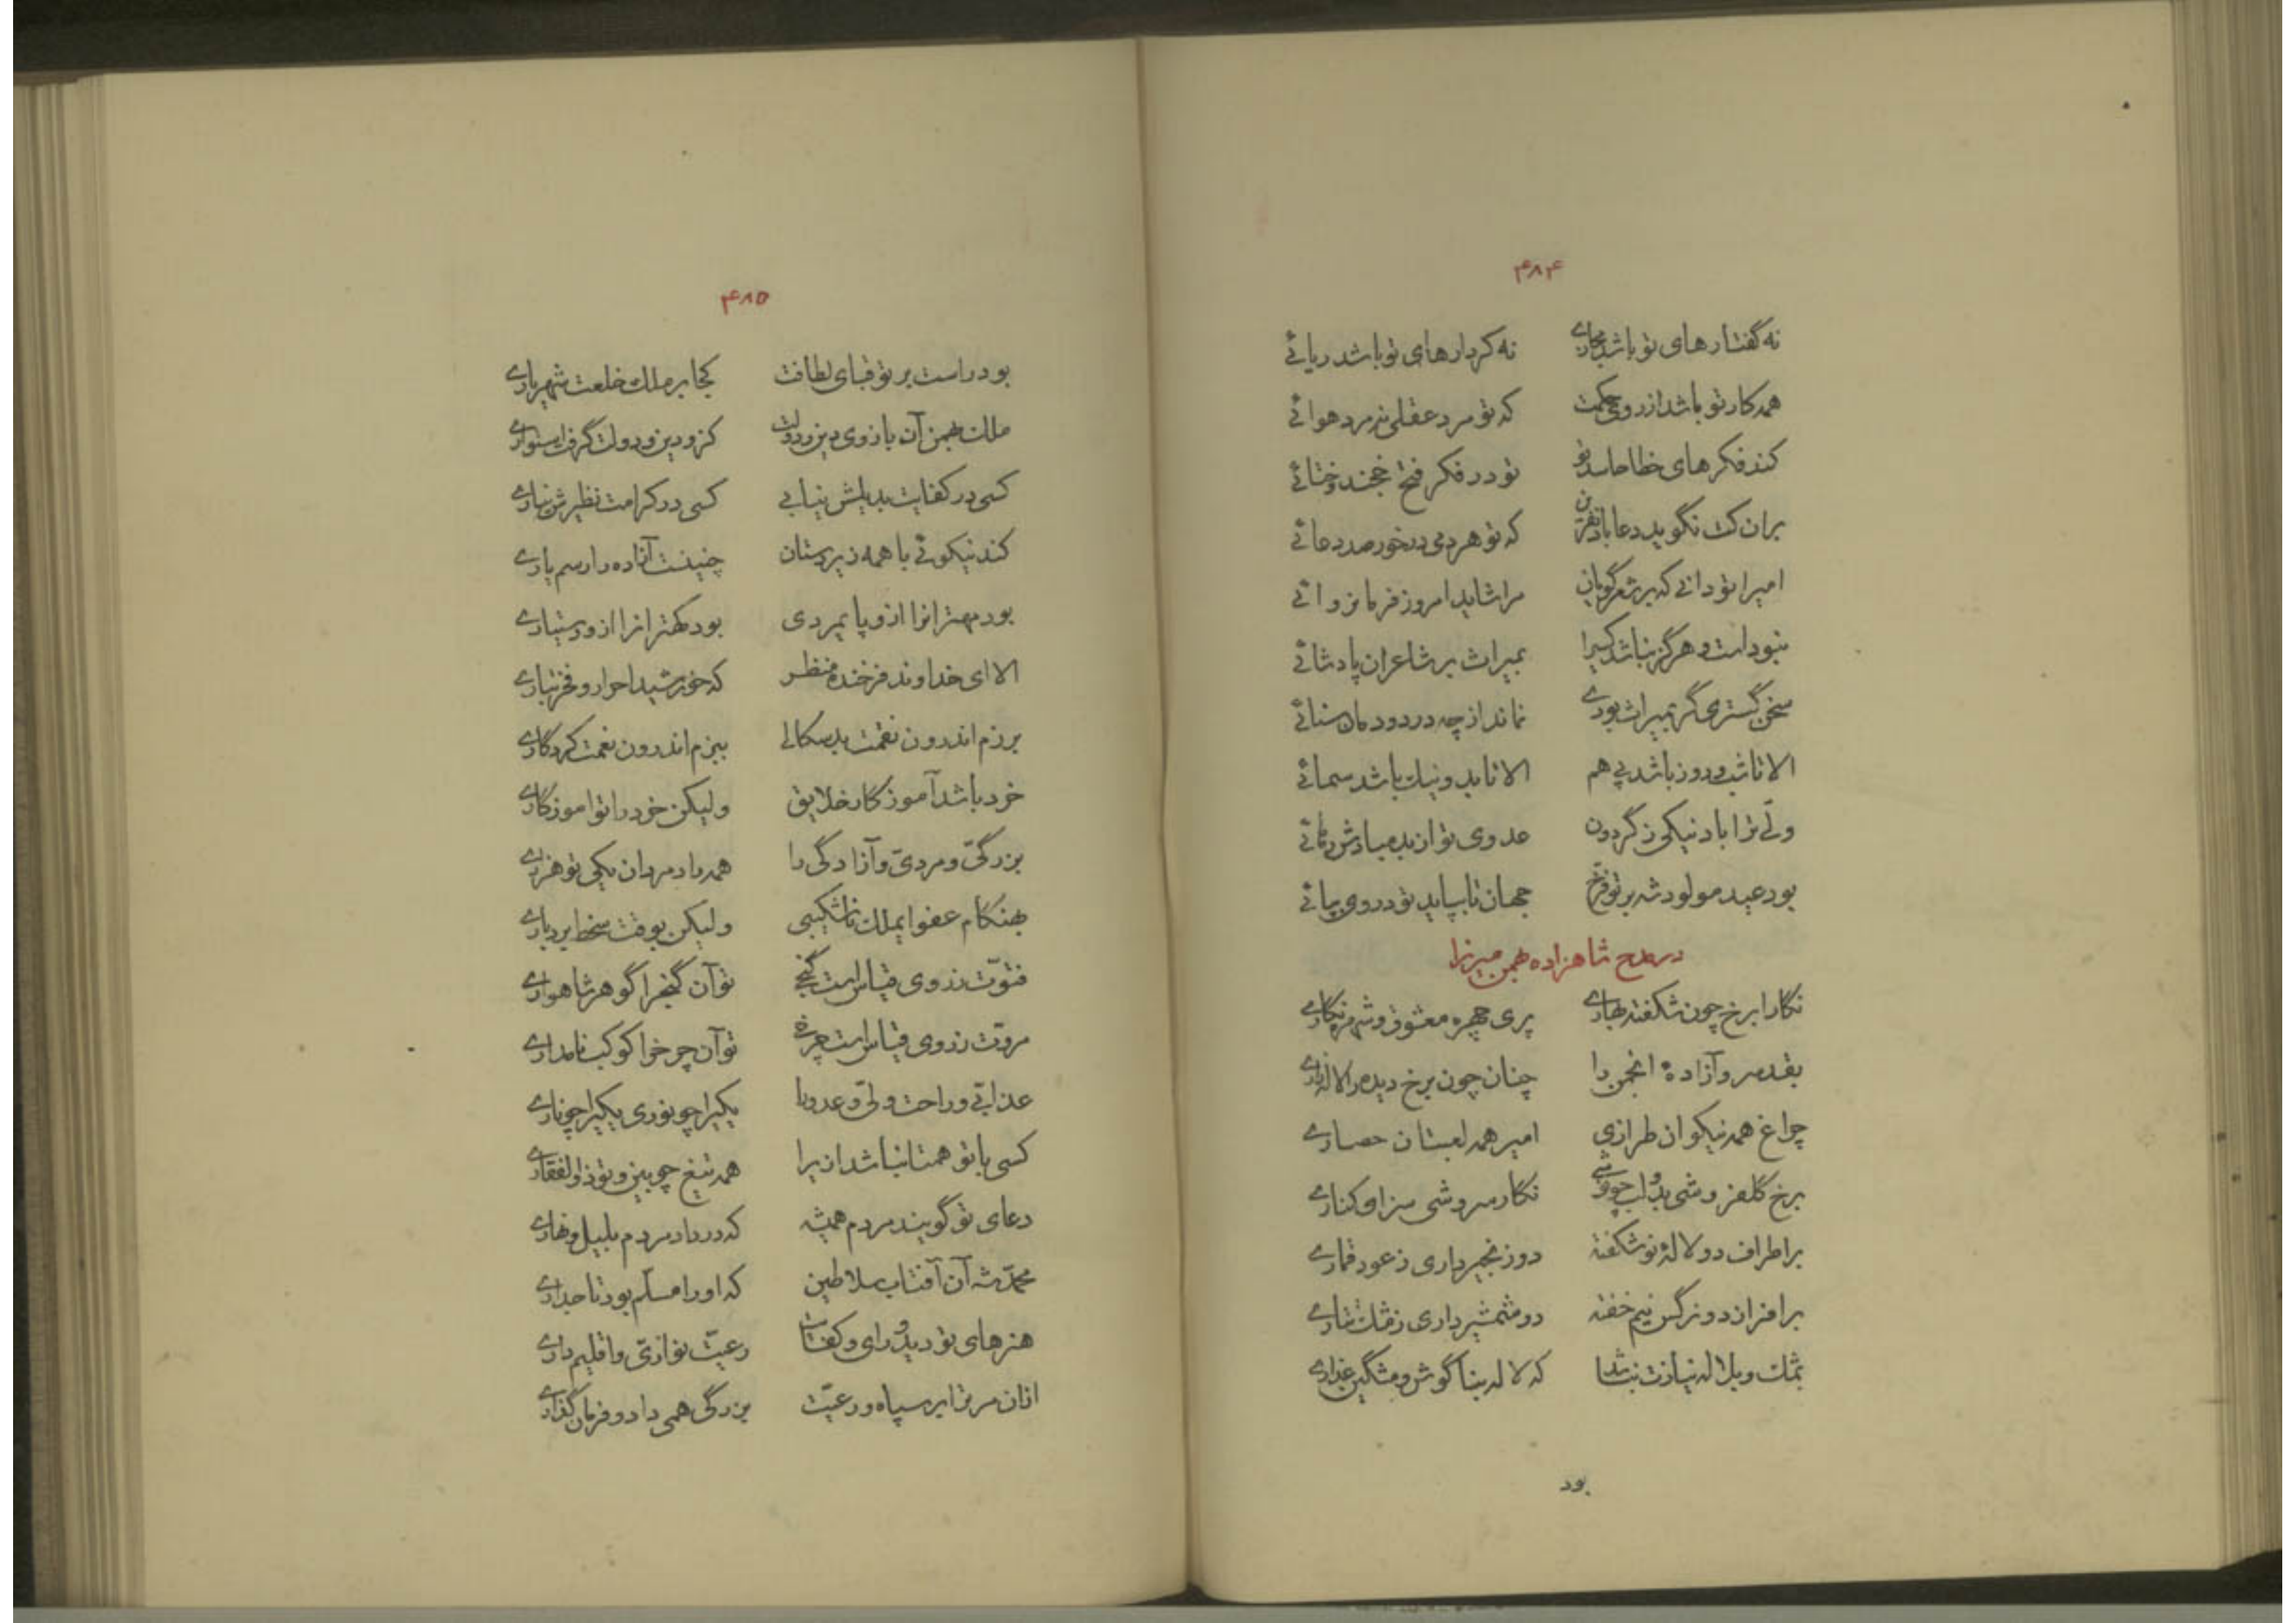 ۴۸۴
نه گفتارهای تو باشد مجازی نه کردارهای تو باشد ریائی
همه کار تو باشد از روی حکمت که تو مرد عقلی نه مرد هوائی
کند فکرهای خطا حاسد تو تو در فکر فتح خجند و ختائی
بران کت نگوید دعا باد نفرین که تو هردمی درخور صد دعائی
امیرا تو دانی که بر شعرگویان مرا شاید امروز فرمانروائی
نبوداست و هرگز نباشد کسیرا بمیراث بر شاعران پادشائی
سخن گستری گر بمیراث بودی نماند از چه در دودمان سنائی
الا تا شب و روز باشد پی هم الا تا بد و نیک باشد سمائی
ولی ترا باد نیکی ز گردون عدوی تو از بد مبادش رهائی
بود عید مولود شه بر تو فرخ جهان تا بپاید تو در وی بپائی
در مدح شاهزاده بهمن میرزا
نگارا برخ چون شکفته بهاری پری چهره معشوق و شیرین نگاری
بقد سرو آزادهٔ انجمن را چنان چون برخ دیده را لاله زاری
چراغ همه نیکوان طرازی امیر همه لعبتان حصاری
برخ گلفروشی بدو لب چو نوشی نگار سروشی سزاو کناری
بر اطراف دو لالهٔ نوشکفته دو زنجیر داری ز عود قماری
برافراز دو نرگس نیم خفته دو شمشیر داری ز مشک تتاری
بمشک و بلاله نیازت نباشد که لاله بناگوش و مشگین عذاری
بود
۴۸۵
بود راست بر تو قبای لطافت کجا بر ملک خلعت شهریاری
ملک بهمن آن بازوی دین و دولت کزو دین و دولت گرفت استواری
کسی در کفایت بدیلش نیابی کسی در کرامت نظیرش نیاری
کند نیکوئی با همه زیردستان چنینست آزاده را رسم یاری
بود مهترانرا ازو پایمردی بود کهترانرا ازو دستیاری
الا ای خداوند فرخنده منظر که خورشید احرار و فخر تباری
برزم اندرون نقمت بدسگالی ببزم اندرون نعمت کردگاری
خرد باشد آموزگار خلایق ولیکن خرد را تو اموزگاری
بزرگی و مردی و آزادگی را همه راد مردان یکی تو هزاری
بهنگام عفو ایملک ناشکیبی ولیکن بوقت سخط بردباری
فتوت ز روی قیاس است گنجی تو آن گنج را گوهر شاهواری
مروت ز روی قیاس است چرخی تو آن چرخ را کوکب نامداری
عذابی و راحت ولی و عدو را یکیرا چو نوری یکیرا چو ناری
کسی با تو همتا نباشد ازیرا همه تیغ چوبین و تو ذوالفقاری
دعای تو گویند مردم همیشه که در یاد مردم بلیل و نهاری
محمد شه آن آفتاب سلاطین که او را مسلم بود تاجداری
هنرهای تو دید و رای و کفایت رعیت نوازی و اقلیم داری
ازان مر ترا بر سپاه و رعیت بزرگی همی داد و فرمان گذاری